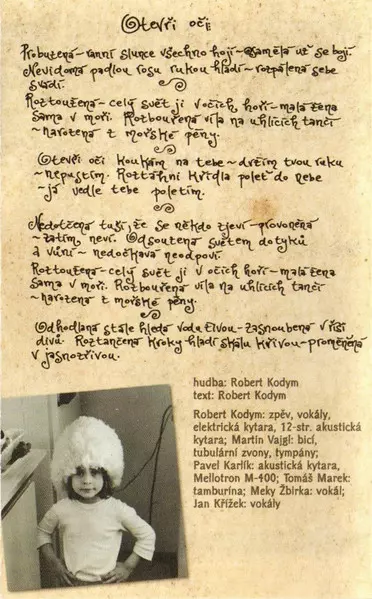 Otevři oči
Probuzená~ranní slunce všechno hojí~saměla už se bojí
Nevidomá padlou rosu rukou hladí~rozpálená sebe
svádí.
Roztoužená~celý svět jí v očích hoří~malá žena
sama v moři. Rozbouřená víla na uhlících tančí
~narozená z mořské pěny.
Otevři oči koukám na tebe~držím tvou ruku
~nepustím. Roztáhni křídla poleť do nebe
~já vedle tebe poletím.
Nedotčená tuší, že se někdo zjeví~provoněná
~zatím neví. Odsouzená světem dotyků
a vůní~nedočkavá neodpoví.
Roztoužená~celý svět jí v očích hoří~malá žena
sama v moři. Rozbouřená víla na uhlících tančí
~narozená z mořské pěny.
Odhodlaná stále hledá vodu živou~zasnoubená v říši
divů. Roztančená kroky hladí skálu křivou~proměněná
v jasnozřivou.
hudba: Robert Kodym
text: Robert Kodym
Robert Kodym: zpěv, vokály,
elektrická kytara, 12-str. akustická
kytara; Martin Vajgl: bicí,
tubulární zvony, tympány;
Pavel Karlík: akustická kytara,
Mellotron M-400; Tomáš Marek:
tamburína; Meky Žbirka: vokál;
Jan Křížek: vokály